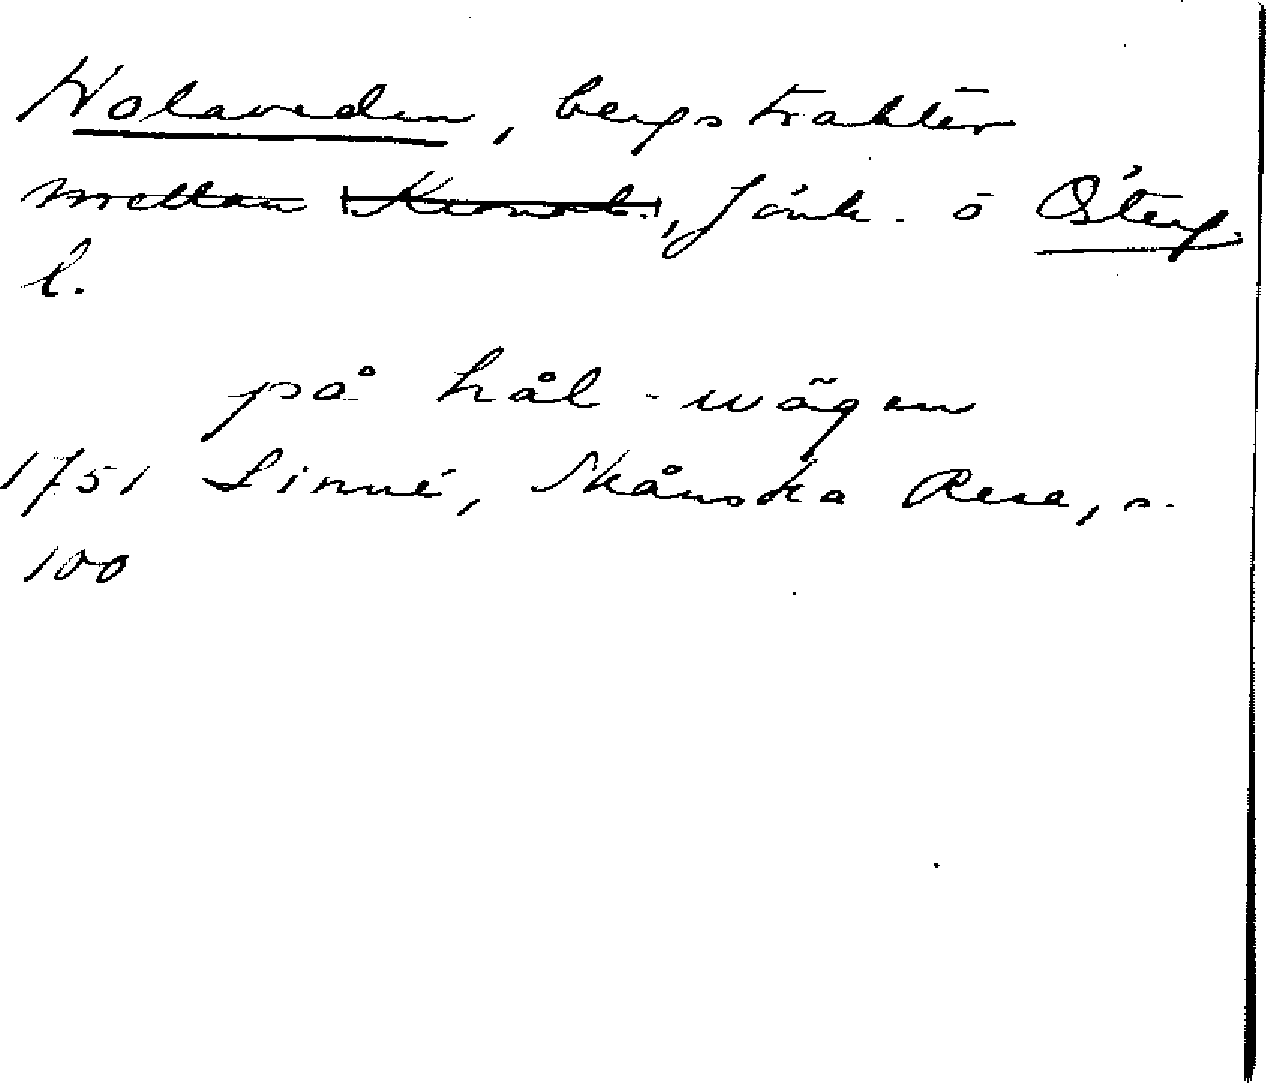 Wolaveden, bergstrakten
mellan Kronob., Jönk. o Österg.
l.
på hål-wägen
1751 Linné, Skånska Resa, s.
100